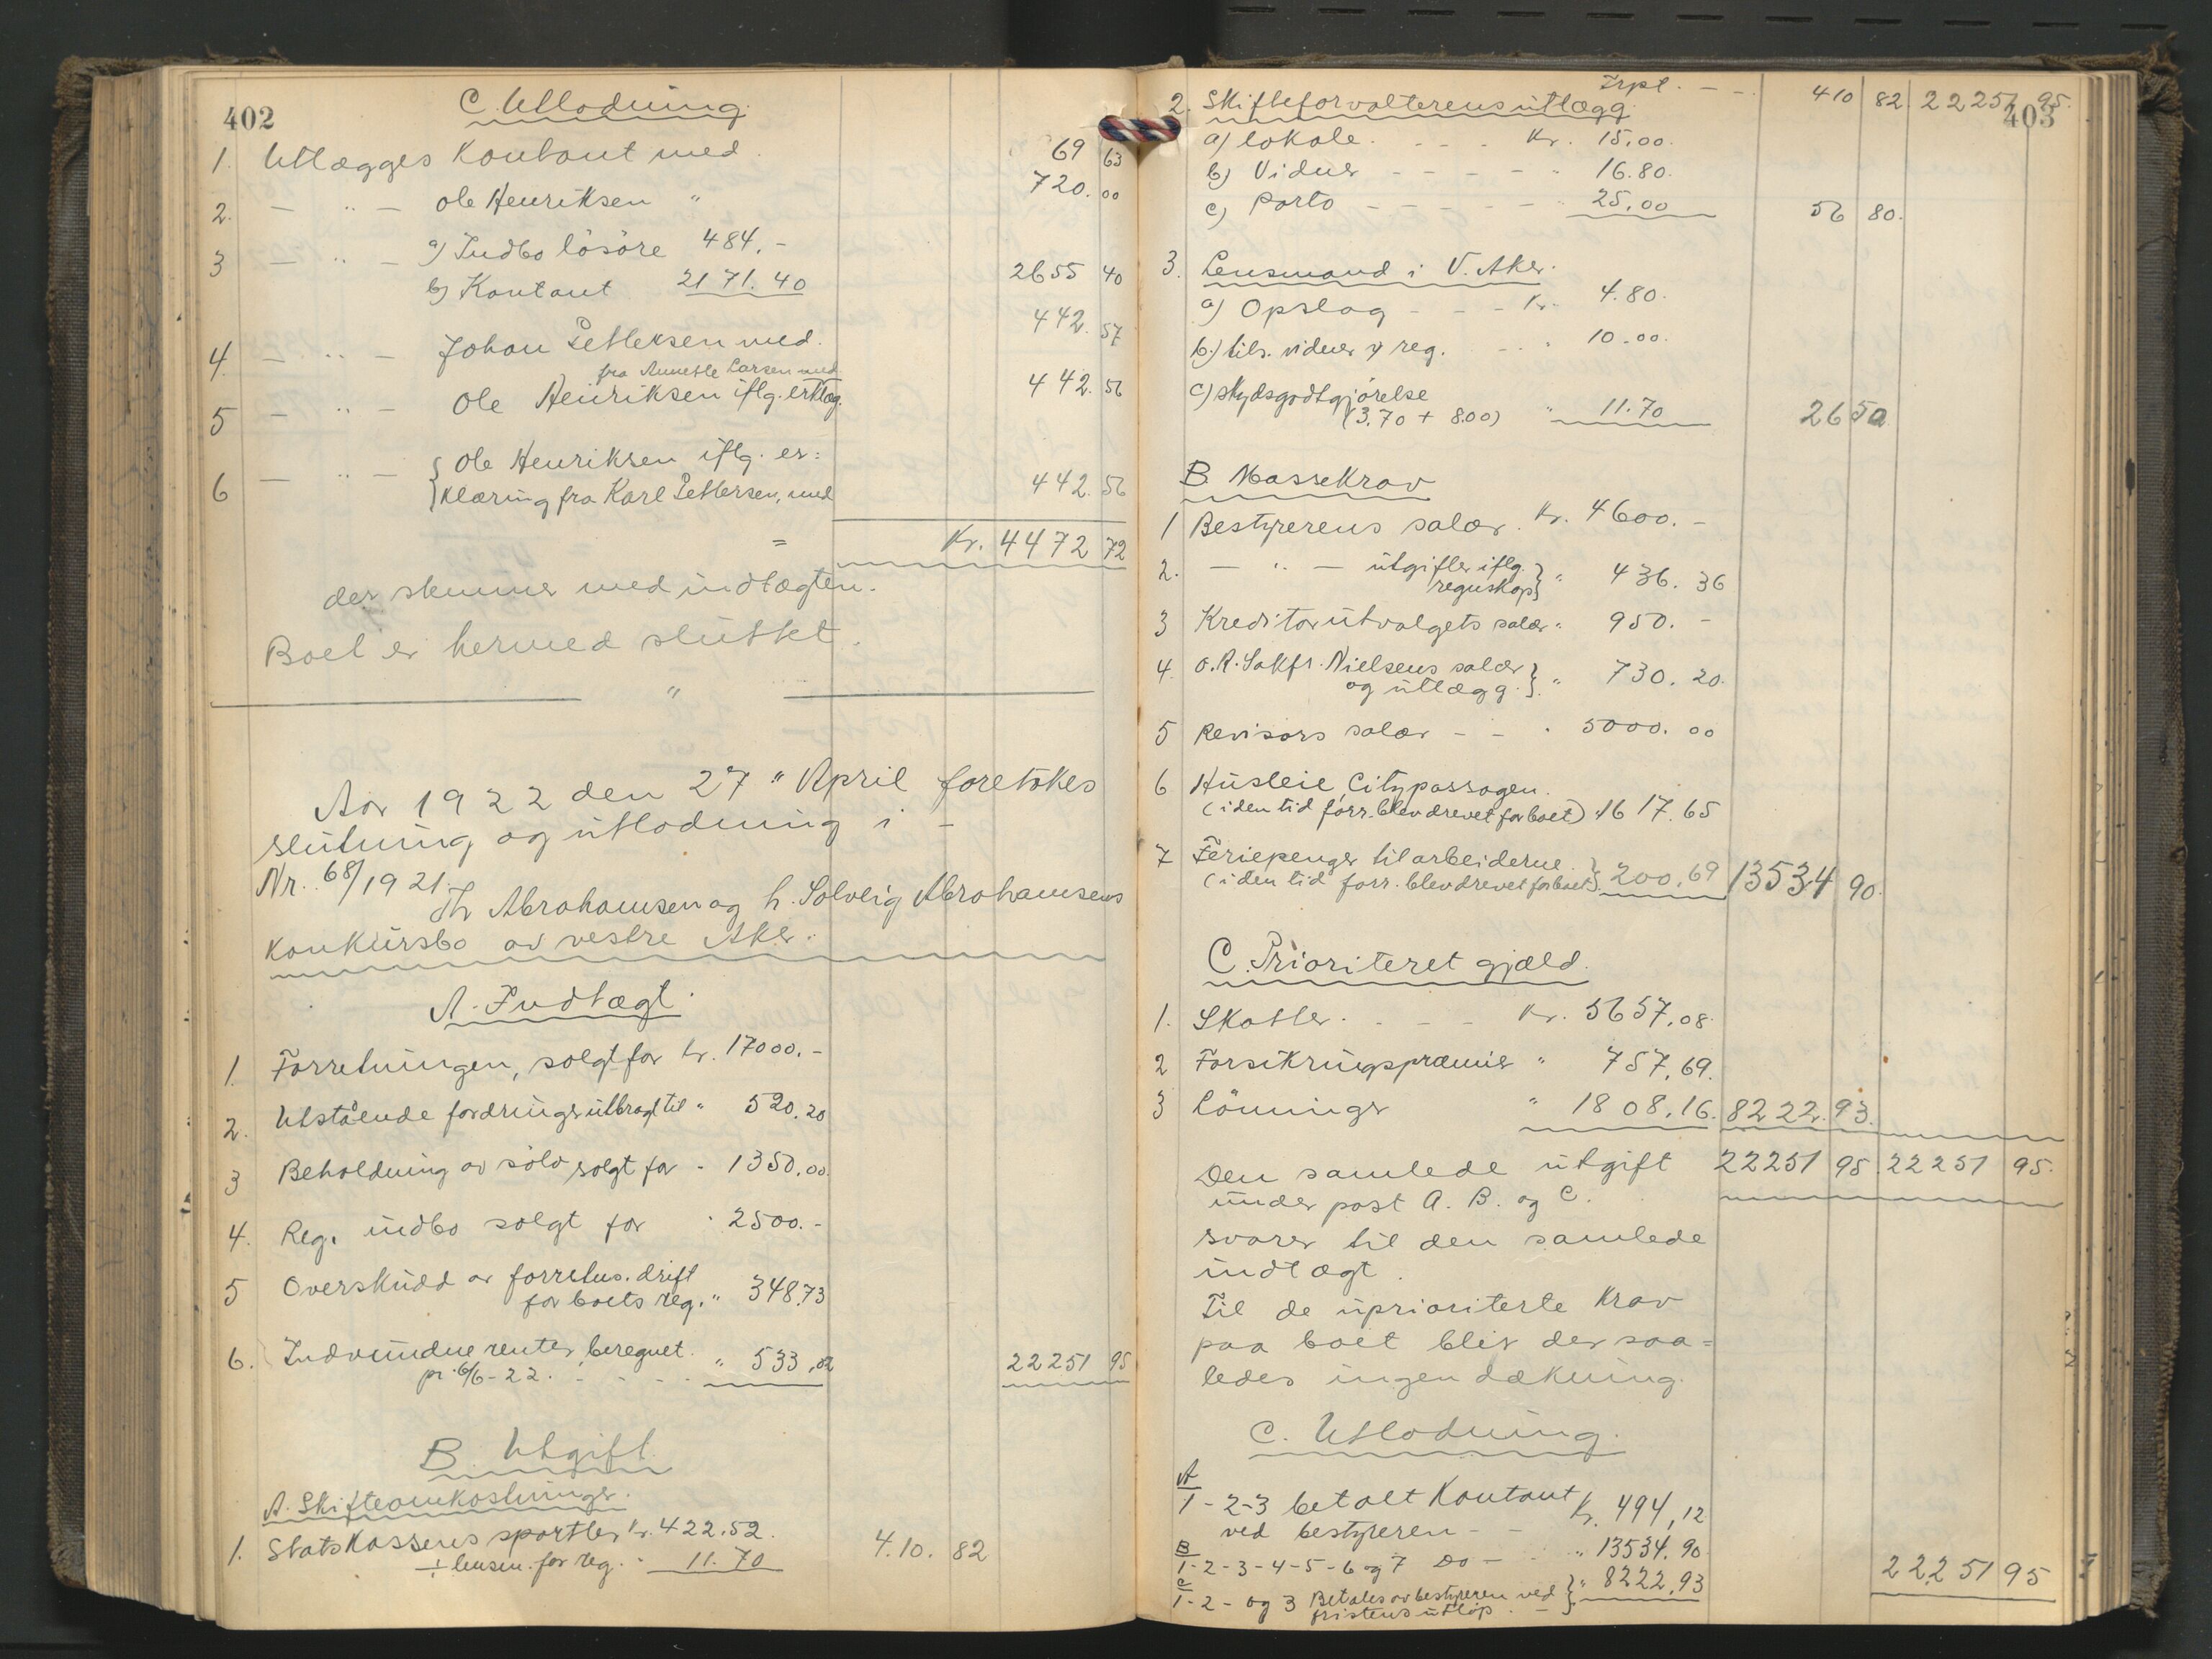 402
C. Utlodning.
1. Utlægges Kontant med 69 63
2. — " — Ole Henriksen " 720. 00
3 — " — a) Indbo løsøre 484.-
b) Kontant 2171.40 2655 40
4. — " — Johan Pettersen med. 442. 57
fra Annette Larsen med
5 — " — Ole Henriksen iflg. erklæg. 442. 56
6 — " — { Ole Henriksen iflg. er=
klæring fra Karl Pettersen, med 442. 56
= Kr. 4472 72
der stemmer med indtægten.
Boet er hermed sluttet.
"
Aar 1922 den 27" April foretokes
slutning og utlodning i -
Nr. 68/1921.
Th Abrahamsen og h. Solveig Abrahamsens
Konkursbo av vestre Aker.
A. Indtægt.
1. Forretningen, solgt for kr. 17000.-
2. Utstående fordringer utbragt til " 520.20
3 Beholdning av sølv solgt for - 1350.00
4. Reg. indbo solgt for " 2500.-
5 Overskudd av forretns. drift
for boets reg. " 348.73
6. Indvundne renter, beregnet
pr. 6/6-22. - - - " 533,02 22251 95
B. Utgift.
A. Skifteomkostninger.
1. Statskassens sportler Kr. 422.52.
÷ lensm. for reg. - 11.70 4.10. 82
403
Trpt. - - 410 82. 22251 95.
2. Skifteforvalterens utlægg.
a) lokale. - - - Kr. 15.00.
b) Vidner - - - - " 16.80.
c) Porto - - - - - " 25.00 56 80.
3. Lensmand i V. Aker.
a) Opslag - - - Kr. 4.80.
b.) tils. vidner v reg. - - " 10.00.
c) skydsgodtgjørelse
(3.70 + 8.00) " 11.70 26 50
B Massekrav
1 Bestyrerens salær. Kr. 4600.-
2. — " — utgifter iflg.
regnskap } " 436. 36
3 Kreditorutvalgets salær " 950.-
4. O.R. Sakfr. Nielsens salær
og utlægg. } " 730. 20.
5 Revisors salær - - " 5000. 00
6 Husleie, Citypassagen.
(i den tid forr. blev drevet for boet) 1617.65
7 Feriepenger til arbeiderne.
(i den tid forr. blev drevet for boet) } 200.69 13534 90.
C. Prioriteret gjæld.
1. Skatter. - - - Kr. 5657.08.
2 Forsikringspræmier " 757.69.
3 Lønninger " 1808.16. 8222. 93.
Den samlede utgift 22251 95. 22251 95.
under post A. B. og C.
svarer til den samlede
indtægt.
Til de uprioriterte krav
paa boet blir der saa=
ledes ingen dækning.
C. Utlodning.
A
1-2-3 betalt Kontant
ved bestyreren - - Kr. 494,12
B
1-2-3-4-5-6 og 7 Do - " 13534.90.
C
1-2- og 3 Betales av bestyreren ved } " 8222.93 22251 95
fristens utløp. -